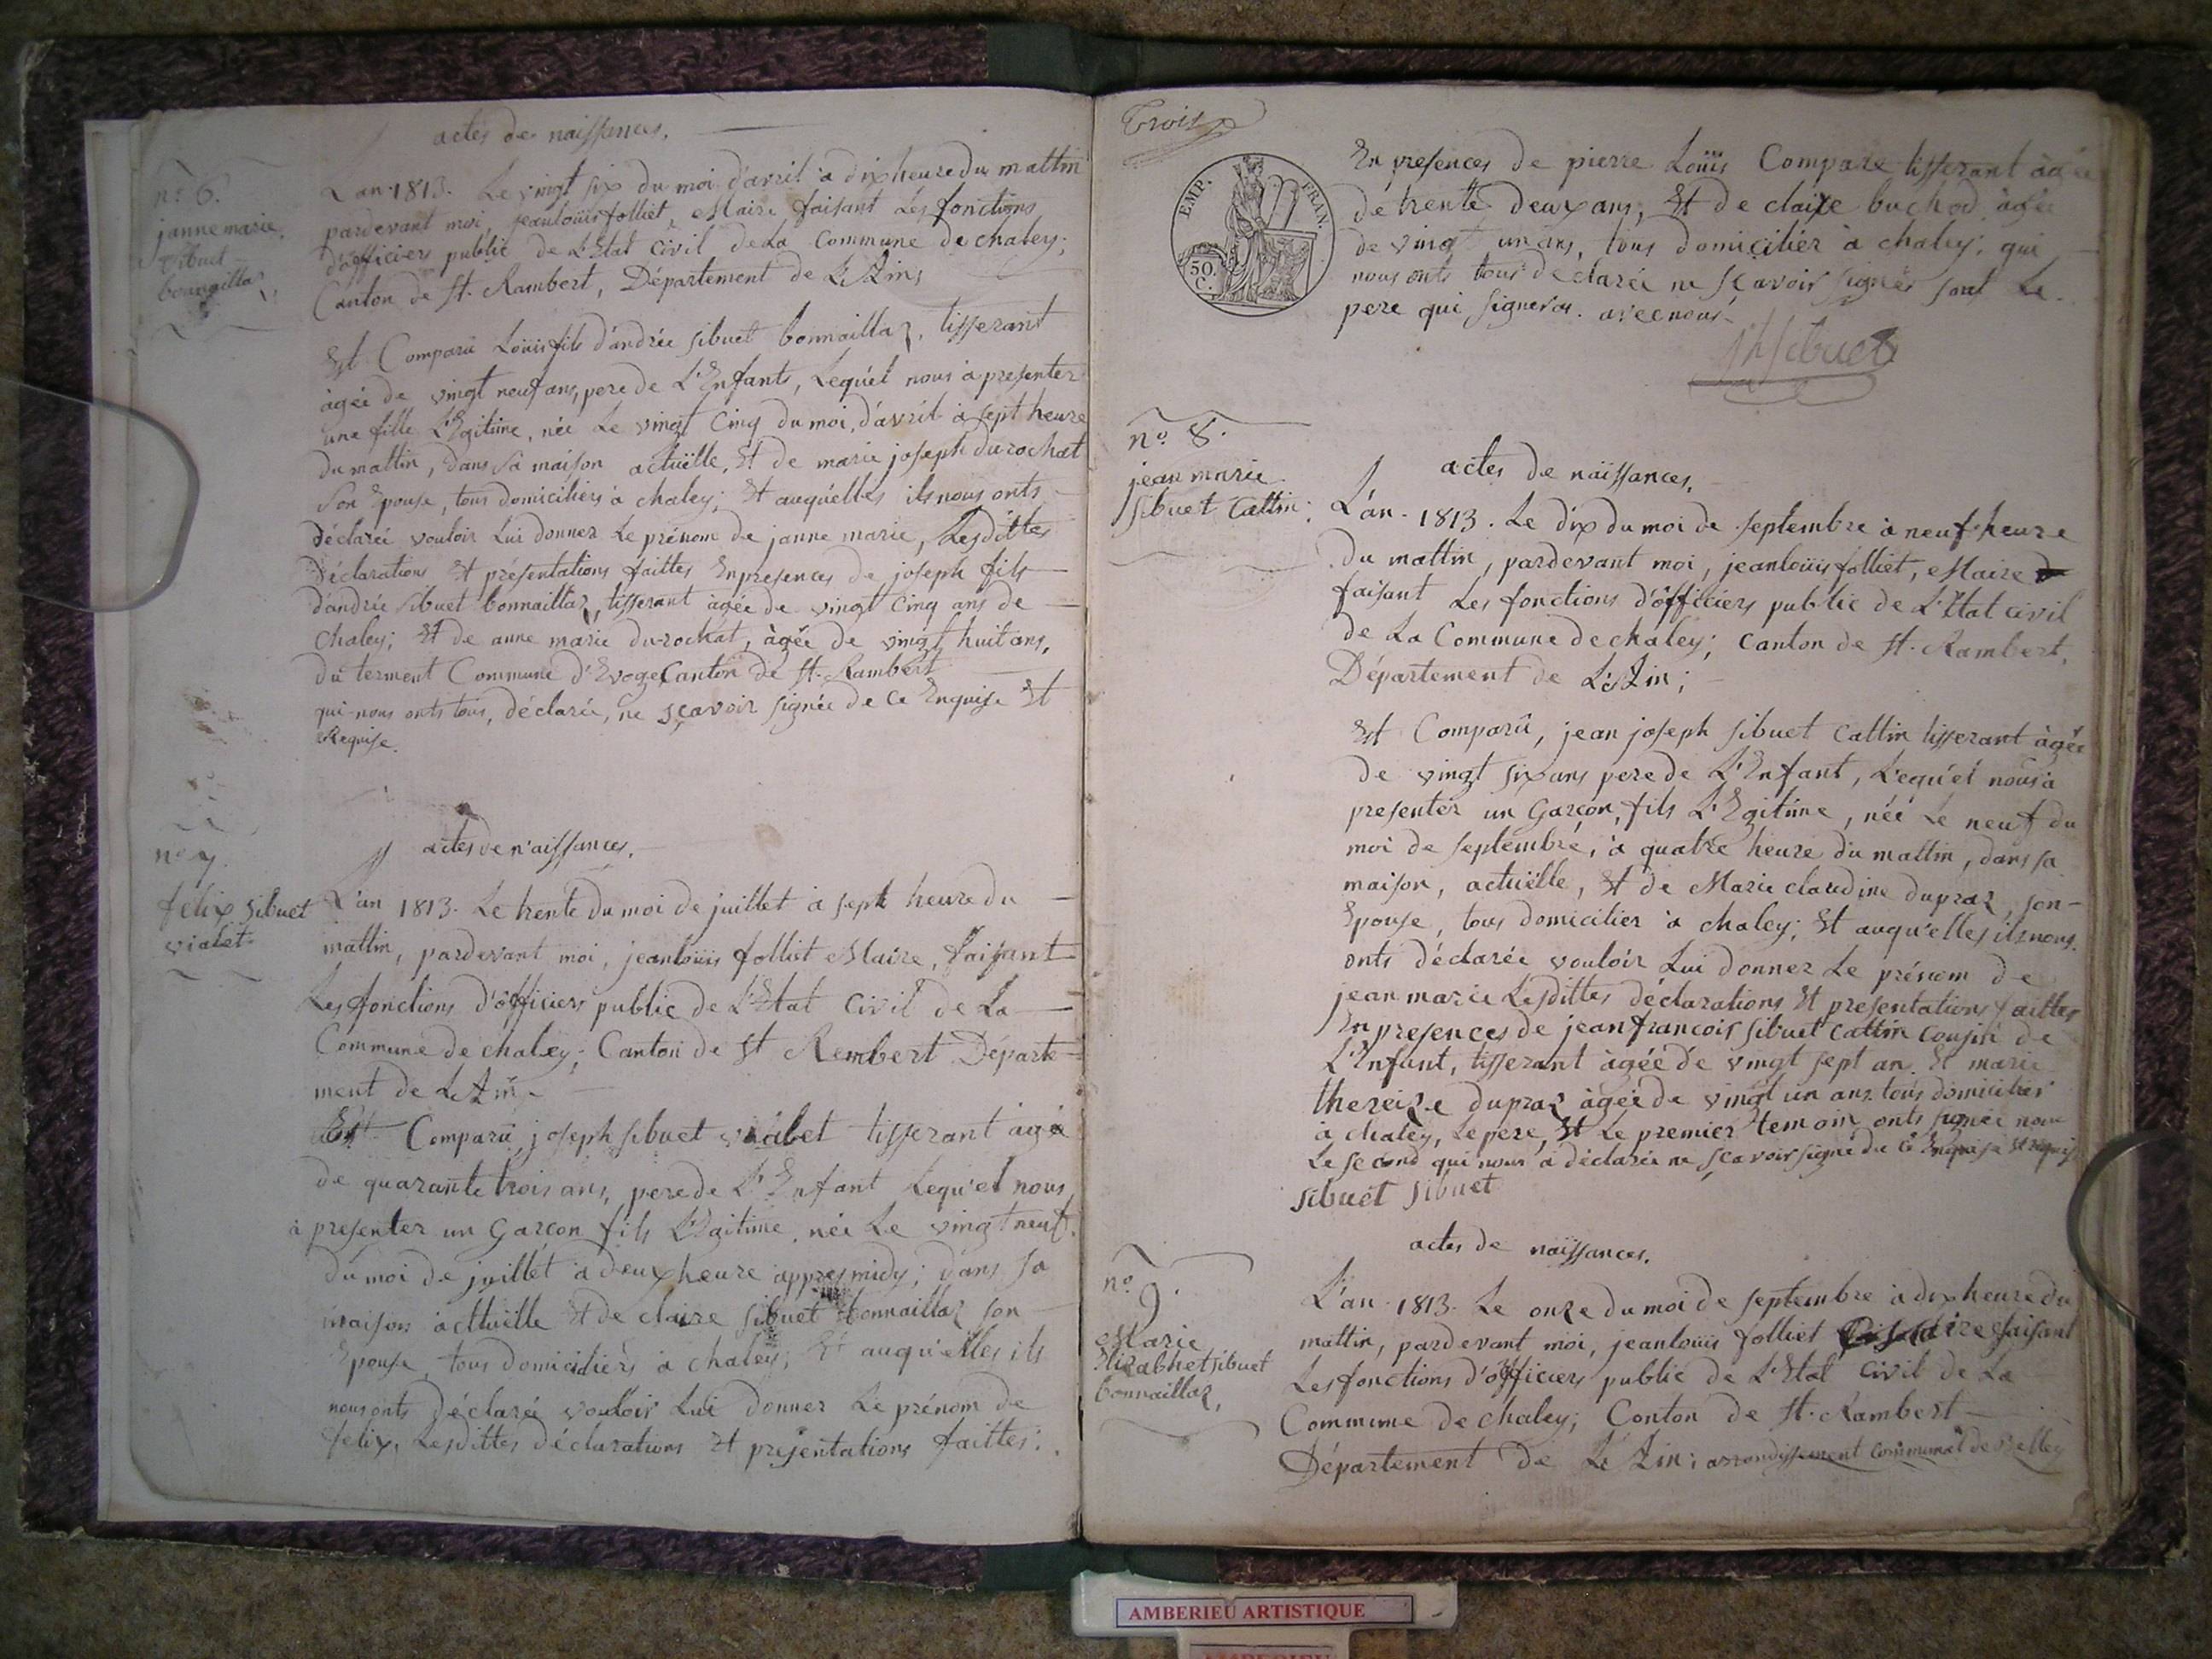 actes de naissances.
n.º 6.
janne marie
sibuet
bonnaillaz
L'an 1813. Le vingt six du moi d'avril à dix heure du mattin
pardevant moi, jeanlouïs folliet, Maire faisant Les fonctions
d'officiers public de L'Etat Civil de La Commune de chaley;
Canton de St. Rambert, Département de L'Ain;
Est Comparu Louïs fils d'andrée sibuet bonnaillaz, tisserant
àgée de vingt neuf ans, pere de L'Enfants, Lequ'el nous à presenter
une fille L'Egitime, née Le vingt Cinq du moi d'avril à sept heure
du mattin, dans sa maison actuëlle, Et de marie joseph durochat
son Epouse, tous domiciliers à chaley; Et auqu'elles ils nous onts
déclarée vouloir Lui donner Le prénom de janne marie, Lesdittes
Déclarations Et présentations faittes Enpresences de joseph fils
d'andrée sibuet bonnaillaz, tisserant àgée de vingt Cinq ans de
Chaley; Et de anne marie durochat, àgée de vingt huit ans,
du terment Commune d'Evoge Canton de St. Rambert
qui nous onts tous, déclarée, ne sçavoir signée de Ce Enquise Et
Requise.
actes de n'aissances.
nº 7.
felix sibuet
vialet
L'an 1813. Le trente du moi de juillet à sept heure du
mattin, pardevant moi, jeanlouïs folliet Maire, faisant
Les fonctions d'officiers public de L'Etat Civil de La
Commune de chaley; Canton de St Rembert Départe-
ment de L'Ain
Est Comparu, joseph sibuet vialet tisserant àgée
de quarante trois ans, pere de L'Enfant Lequ'el nous
à presenter un Garcon fils L'Egitime, née Le vingt neuf
du moi de juillet à deux heure appresmidy; dans sa
maison actuëlle Et de claire sibuet bonnaillaz son
Epouse, tous domiciliers à chaley; Et auqu'elles ils
nous onts Déclarée vouloir Lui donner Le prénom de
felix, Lesdittes déclarations Et présentations faittes:
Trois
EMP. FRAN.
50.
C.
En presences de pierre Louïs Compare tisserant àgée
de trente deux ans, Et de claire buchod àgée
de vingt un ans, tous domicilier à chaley; qui
nous onts tous declarée ne sçavoir signés sauf Le
pere qui signeras. avec nous
Jh Sibuet
nº 8.
jean marie
sibuet Cattin
actes de naïssances.
L'an. 1813. Le dix du moi de septembre à neuf heure
du mattin, pardevant moi, jeanlouïs folliet, Maire
faisant Les fonctions d'officiers public de L'Etat civil
de La Commune de chaley; Canton de St. Rambert,
Département de L'Ain;
Est Comparu, jean joseph sibuet Cattin tisserant àgée
de vingt six ans pere de L'Enfant, L'equ'el nous à
presenter un Garcon, fils L'Egitime, née Le neuf du
moi de septembre, à quatre heure du mattin, dans sa
maison, actuëlle, Et de Marie claudine dupraz, son
Epouse, tous domicilier à chaley; Et auqu'elles ils nous
onts déclarée vouloir Lui donner Le prénom de
jean marie Lesdittes déclarations Et presentations faittes
Enpresences de jean francois sibuet Cattin Cousin de
L'Enfant, tisserant àgée de vingt sept an. Et marie
thereize dupraz àgée de vingt un ans tous domicilier
à chaley, Le pere, Et Le premier temoin onts signée nom
Le second qui nous à déclarée ne sçavoir signé du Ce Enquise et requis
sibuet sibuet
actes de naïssances.
nº
9.
Marie
Elizabhet sibuet
bonnaillaz,
L'an. 1813. Le onze du moi de septembre à dix heure du
mattin, pardevant moi, jeanlouïs folliet Maire faisant
Les fonctions d'officiers public de L'Etat Civil de La
Commune de chaley; Conton de St. Rambert
Département de L'Ain; arrondissement Communal de Belley
AMBERIEU ARTISTIQUE
AMBERIEU